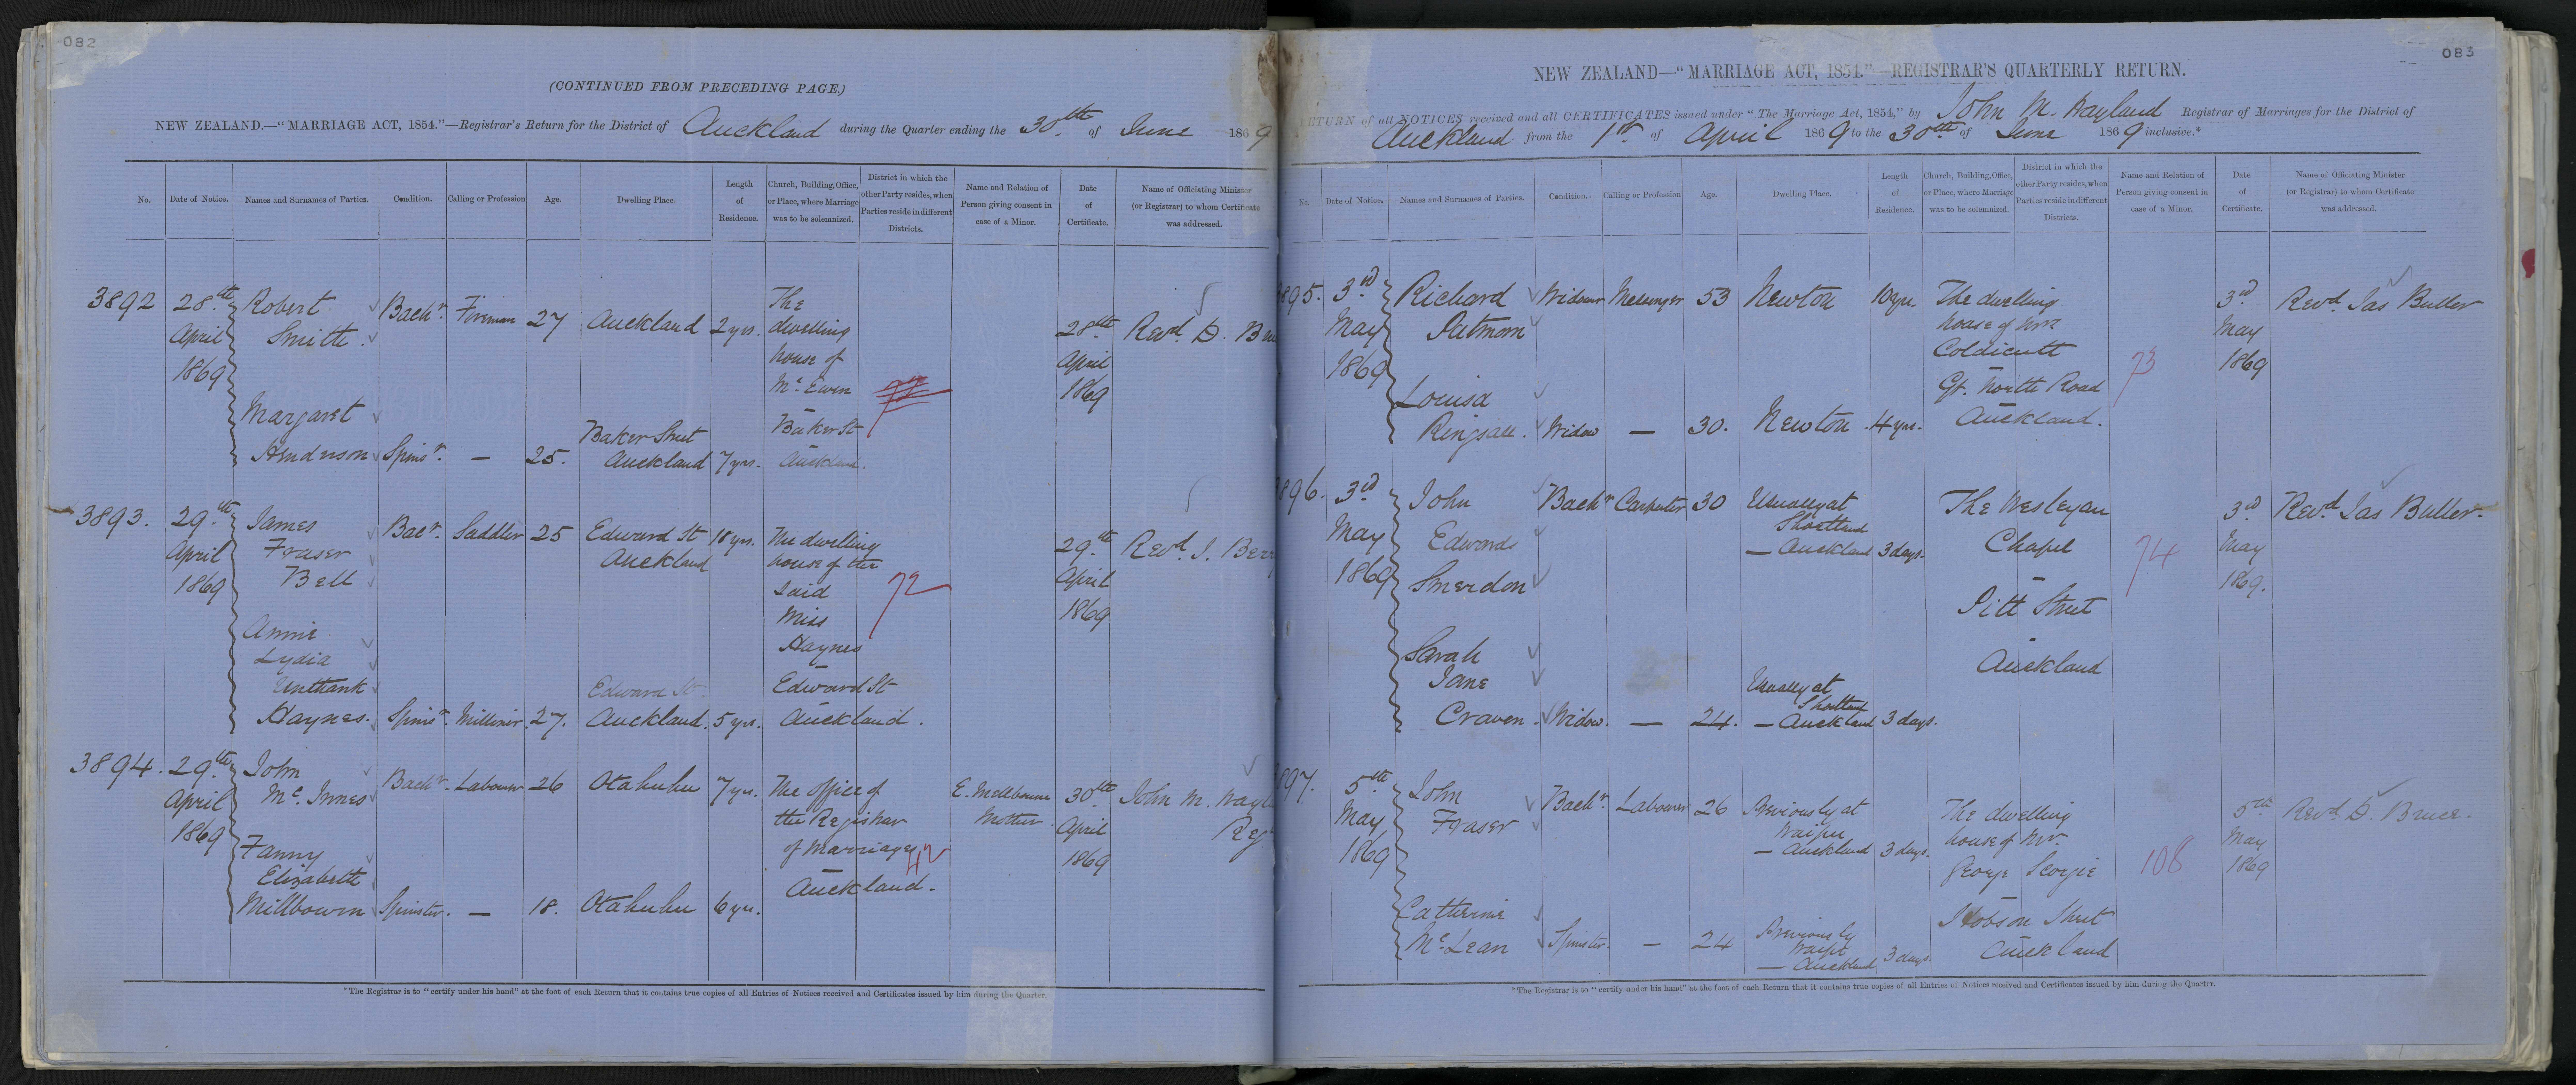 082
(CONTINUED FROM PRECEDING PAGE.)
NEW ZEALAND.—"MARRIAGE ACT, 1854."—Registrar's Return for the District of Auckland during the Quarter ending the 30th of June 1869
No.
Date of Notice.
Names and Surnames of Parties.
Condition.
Calling or Profession
Age.
Dwelling Place.
Length of Residence.
Church, Building, Office, or Place, where Marriage was to be solemnized.
District in which the other Party resides, when Parties reside in different Districts.
Name and Relation of Person giving consent in case of a Minor.
Date of Certificate.
Name of Officiating Minister (or Registrar) to whom Certificate was addressed.
3892
28th
April
1869
Robert
Smith
Bachr.
Fireman
27
Auckland
2 yrs.
The
dwelling
house of
Mc. Ewen
Baker St
Auckland.
28th
April
1869
Revd. D.
Margaret
Henderson
Spinsr.
—
25.
Baker Street
Auckland
7 yrs.
3893.
29th
April
1869
James
Fraser
Bell
Bacr.
Saddler
25
Edward St
Auckland
18 yrs.
The dwelling
house of the
said
Miss
Haynes
Edward St
Auckland.
72
29th
April
1869
Revd. J.
Annie
Lydia
Unthank
Haynes.
Spinsr.
Milliner
27.
Edward St.
Auckland.
5 yrs.
3894.
29th
April
1869
John
Mc. Innes
Bachr.
Labourer
26
Otahuhu
7 yrs.
The office of
the Registrar
of Marriages
Auckland.
42
E. Mellbourne
Mother
30th
April
1869
John M.
Fanny
Elizabeth
Millbourn
Spinster.
—
18.
Otahuhu
6 yrs.
*The Registrar is to "certify under his hand" at the foot of each Return that it contains true copies of all Entries of Notices received and Certificates issued by him during the Quarter.
083
NEW ZEALAND—"MARRIAGE ACT, 1854."—REGISTRAR'S QUARTERLY RETURN.
RETURN of all NOTICES received and all CERTIFICATES issued under "The Marriage Act, 1854," by John M. Wayland Registrar of Marriages for the District of
Auckland from the 1st of April 1869 to the 30th of June 1869 inclusive.*
No.
Date of Notice.
Names and Surnames of Parties.
Condition.
Calling or Profession
Age.
Dwelling Place.
Length of Residence.
Church, Building, Office, or Place, where Marriage was to be solemnized.
District in which the other Party resides, when Parties reside in different Districts.
Name and Relation of Person giving consent in case of a Minor.
Date of Certificate.
Name of Officiating Minister (or Registrar) to whom Certificate was addressed.
895.
3rd
May
1869
Richard
Putman
Widower
Messenger
53
Newton
10 yrs.
The dwelling
house of
Coldicutt
Gt. North Road
Auckland.
73
3rd
May
1869
Revd. Jas Buller
Louisa
Widow
—
30.
Newton
4 yrs.
896.
3rd
May
1869
John
Edwards
Smerdon
Bachr
Carpenter
30
Usually at
Shortland
— Auckland
3 days.
The Wesleyan
Chapel
Pitt Street
Auckland
74
3rd
May
1869.
Revd Jas Buller.
Sarah
Jane
Craven.
Widow.
—
24.
Usually at
Shortland
— Auckland
3 days.
897.
5th
May
1869
John
Fraser
Bachr.
Labourer
26
Previously at
Waipu
— Auckland
3 days.
The dwelling
house of Mr.
George
Hobson Street
Auckland
108
5th
May
1869
Revd. D. Bruce.
Catherine
Mc. Lean
Spinster.
—
24
Previously
Waipu
— Auckland
3 days
*The Registrar is to "certify under his hand" at the foot of each Return that it contains true copies of all Entries of Notices received and Certificates issued by him during the Quarter.